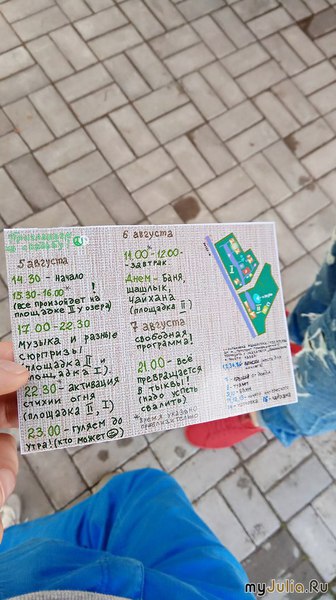 5 августа
14.30 - начало
15.30-16.00 !
(все произойдет на
площадке II у озера)
17.00-22.30
музыка и разные
сюрпризы!
(площадка II и
площадка I).
22.30 - активация
химии огня
(площадка II, I)
23.00 - гуляем до
утра! (кто может)
6 августа
11.00-12.00-
- завтрак
Днем - баня,
шашлык,
чайхана
(площадка II)
7 августа
свободная
программа!
21.00 - всё
превращается
в тыквы!
(надо успеть
свалить)
*время указано
приблизительно
myJulia.Ru